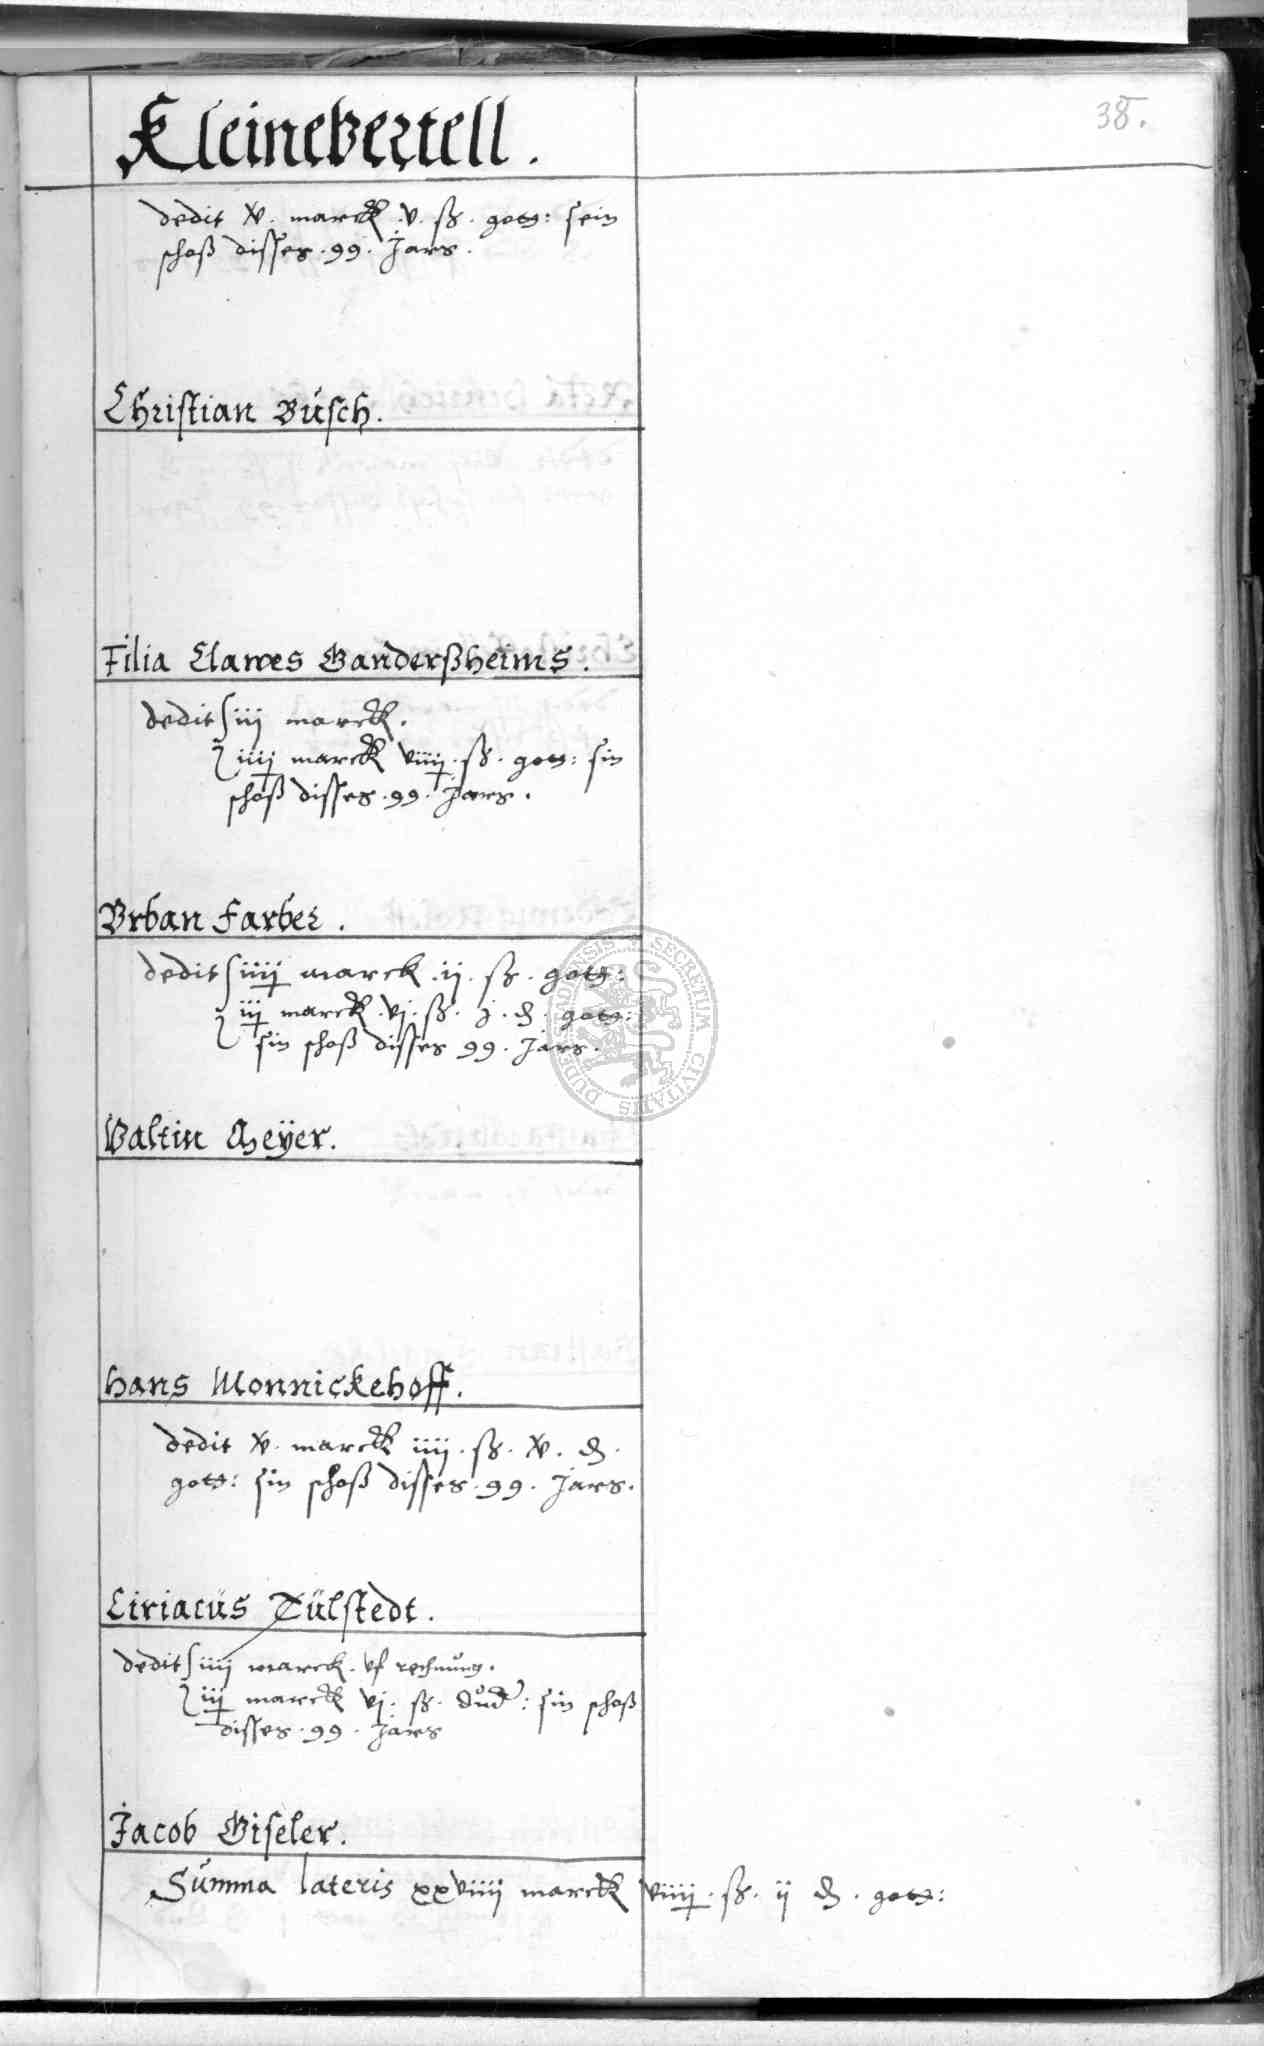 38.
Kleinevertell.
dedit xv. marck .v. ß. gott: sein
schoß disses .99. Jars.
Christian Busch.
Filia Clawes Ganderßheims.
dedit iij marck.
iiij marck viiij. ß. gott: sin
schoß disses .99. Jars.
Vrban Farber.
dedit iiij marck .ij. ß. gott:
iij marck .vj. ß. j. ₰. gott:
sin schoß disses 99. Jars.
Valtin Meÿer.
Hans Monnickehoff.
dedit xv. marck iiij. ß. xv. ₰.
gott: sin schoß disses .99. Jars.
Ciriacus Tülstedt.
dedit iiij marck. vf rechnung.
iij marck vj. ß. Dud: sin schoß
disses .99. Jars
Jacob Giseler.
Summa lateris xxviiij marck viiij. ß. ij ₰. gott:
SECRETUM CIVITATIS DUDERSTADENSIS